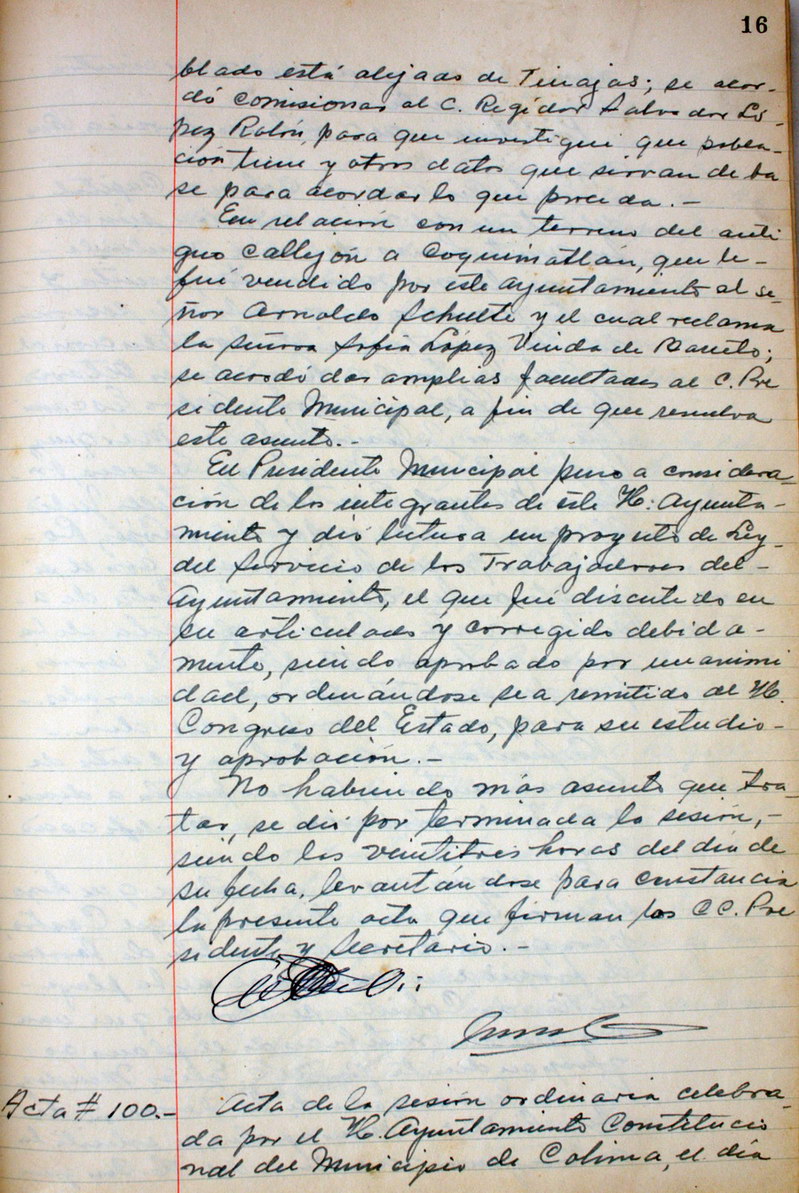 16
blado está alejado de Tinajas; se acor-
dó comisionar al C. Regidor Salvador Ló-
pez Rolón, para que investigue que pobla-
ción tiene y otros datos que sirvan de ba
se para acordar lo que proceda.-
En relación con un terreno del anti
guo callejón a Coquimatlán, que le-
fué vendido por este Ayuntamiento al se-
ñor Arnoldo Schulte y el cual reclama
la señora Sofía López Viuda de Barreto;
se acordó dar amplias facultades al C. Pre
sidente Municipal, a fin de que resuelva
este asunto.-
El Presidente Municipal puso a considera-
ción de los integrantes de este H. Ayunta-
miento y dió lectura a un proyecto de Ley-
del Servicio de los Trabajadores del-
Ayuntamiento, el que fué discutido en
su articulado y corregido debida-
mente, siendo aprobado por unanimi
dad, ordenándose sea remitido al H.
Congreso del Estado, para su estudio-
y aprobación.-
No habiendo más asunto que tra-
tar, se dió por terminada la sesión,-
siendo las veintitres horas del día de
su fecha, levantándose para constancia
la presente acta que firman los CC. Pre
sidente y Secretario.-
Acta # 100.- Acta de la sesión ordinaria celebra-
da por el H. Ayuntamiento Constitucio
nal del Municipio de Colima, el día